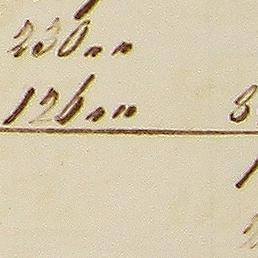 230 " "
126 " " 3